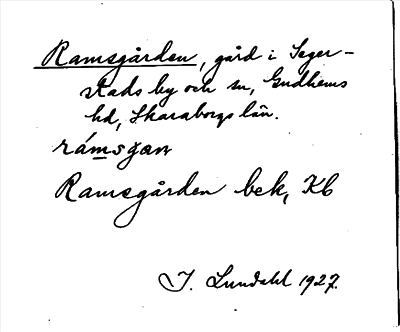 Ramsgården, gård i Seger-
stads by och sn, Gudhems
hd, Skaraborgs län.
rámsgan
Ramsgården bek, Kb
I. Lundahl 1927.